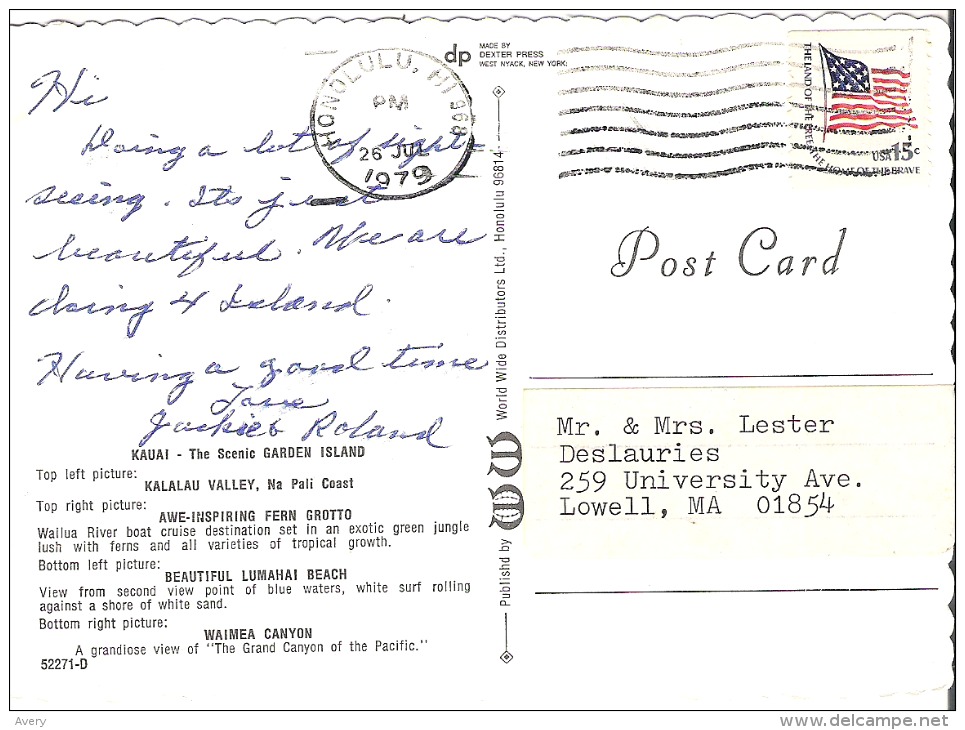 Hi
Doing a lot of sight-
seeing. Its just
beautiful. We are
doing 4 Island.
Having a good time
Love
Jackie & Roland
KAUAI - The Scenic GARDEN ISLAND
Top left picture:
KALALAU VALLEY, Na Pali Coast
Top right picture:
AWE-INSPIRING FERN GROTTO
Wailua River boat cruise destination set in an exotic green jungle
lush with ferns and all varieties of tropical growth.
Bottom left picture:
BEAUTIFUL LUMAHAI BEACH
View from second view point of blue waters, white surf rolling
against a shore of white sand.
Bottom right picture:
WAIMEA CANYON
A grandiose view of "The Grand Canyon of the Pacific."
52271-D
HONOLULU, HI 968
PM
26 JUL
1979
dp
MADE BY
DEXTER PRESS
WEST NYACK, NEW YORK
Publishd by WW World Wide Distributors Ltd., Honolulu 96814
THE LAND OF THE FREE THE HOME OF THE BRAVE
USA 15c
Post Card
Mr. & Mrs. Lester
Deslauries
259 University Ave.
Lowell, MA 01854
Avery
delcampe.net